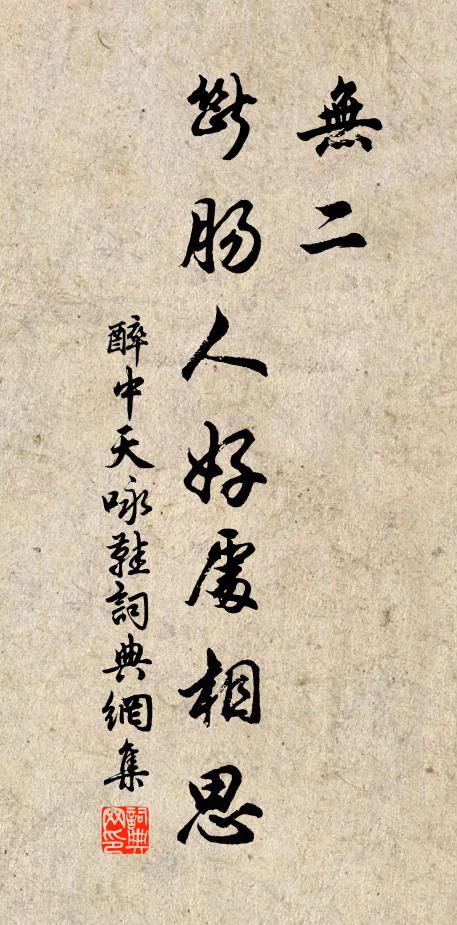 無二
斷腸人好處相思
醉中天咏鞋詞典網集
詞典網印